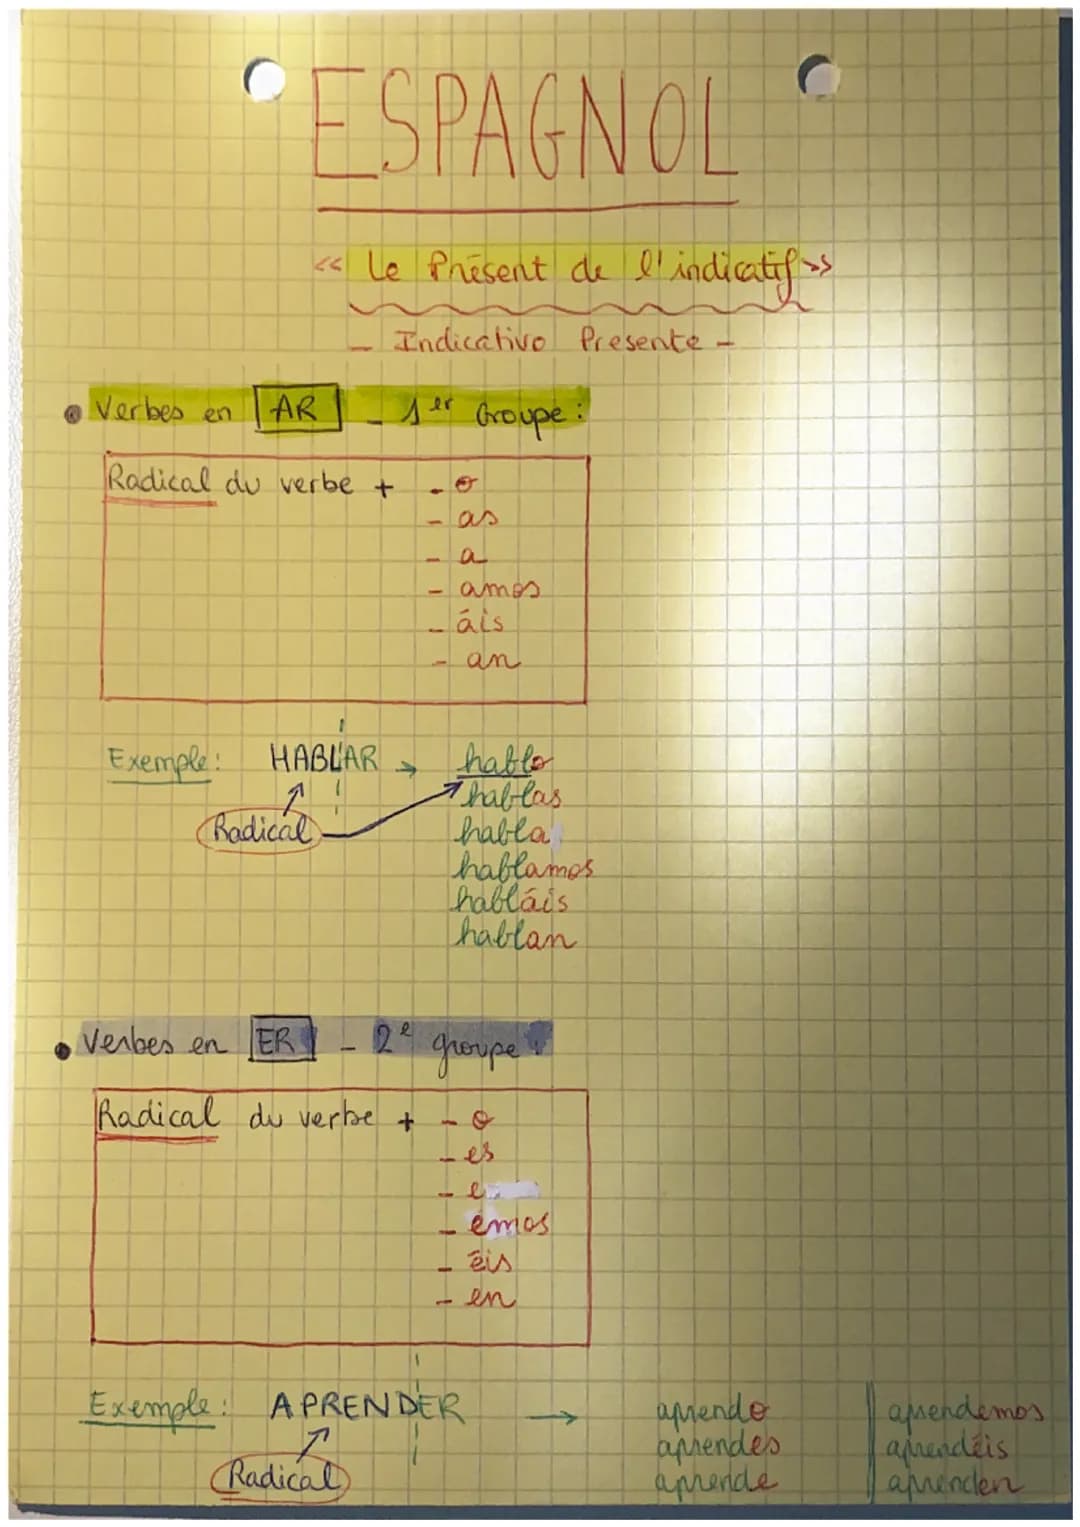 ESPAGNOL
« Le Présent de l'indicatif »
- Indicativo Presente -
• Verbes en AR - 1er Groupe :
Radical du verbe + - o
- as
- a
- amos
- áis
- an
Exemple : HABLAR → hablo
hablas
Radical habla
hablamos
habláis
hablan
• Verbes en ER - 2e groupe :
Radical du verbe + - o
- es
- e
- emos
- éis
- en
Exemple : APRENDER → aprendo aprendemos
aprendes aprendéis
Radical aprende aprenden